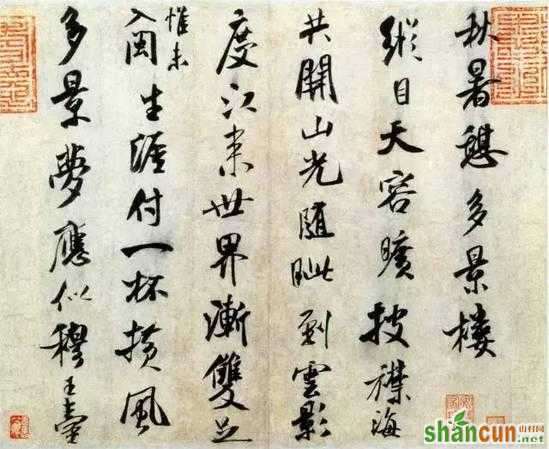 秋暑憩多景樓
縱目天容曠披襟海
共開山光隨眦到雲影
度江來世界漸雙足
惟未
入閩生涯付一杯橫風
多景夢應似穆王臺
shancun
山村网
.net